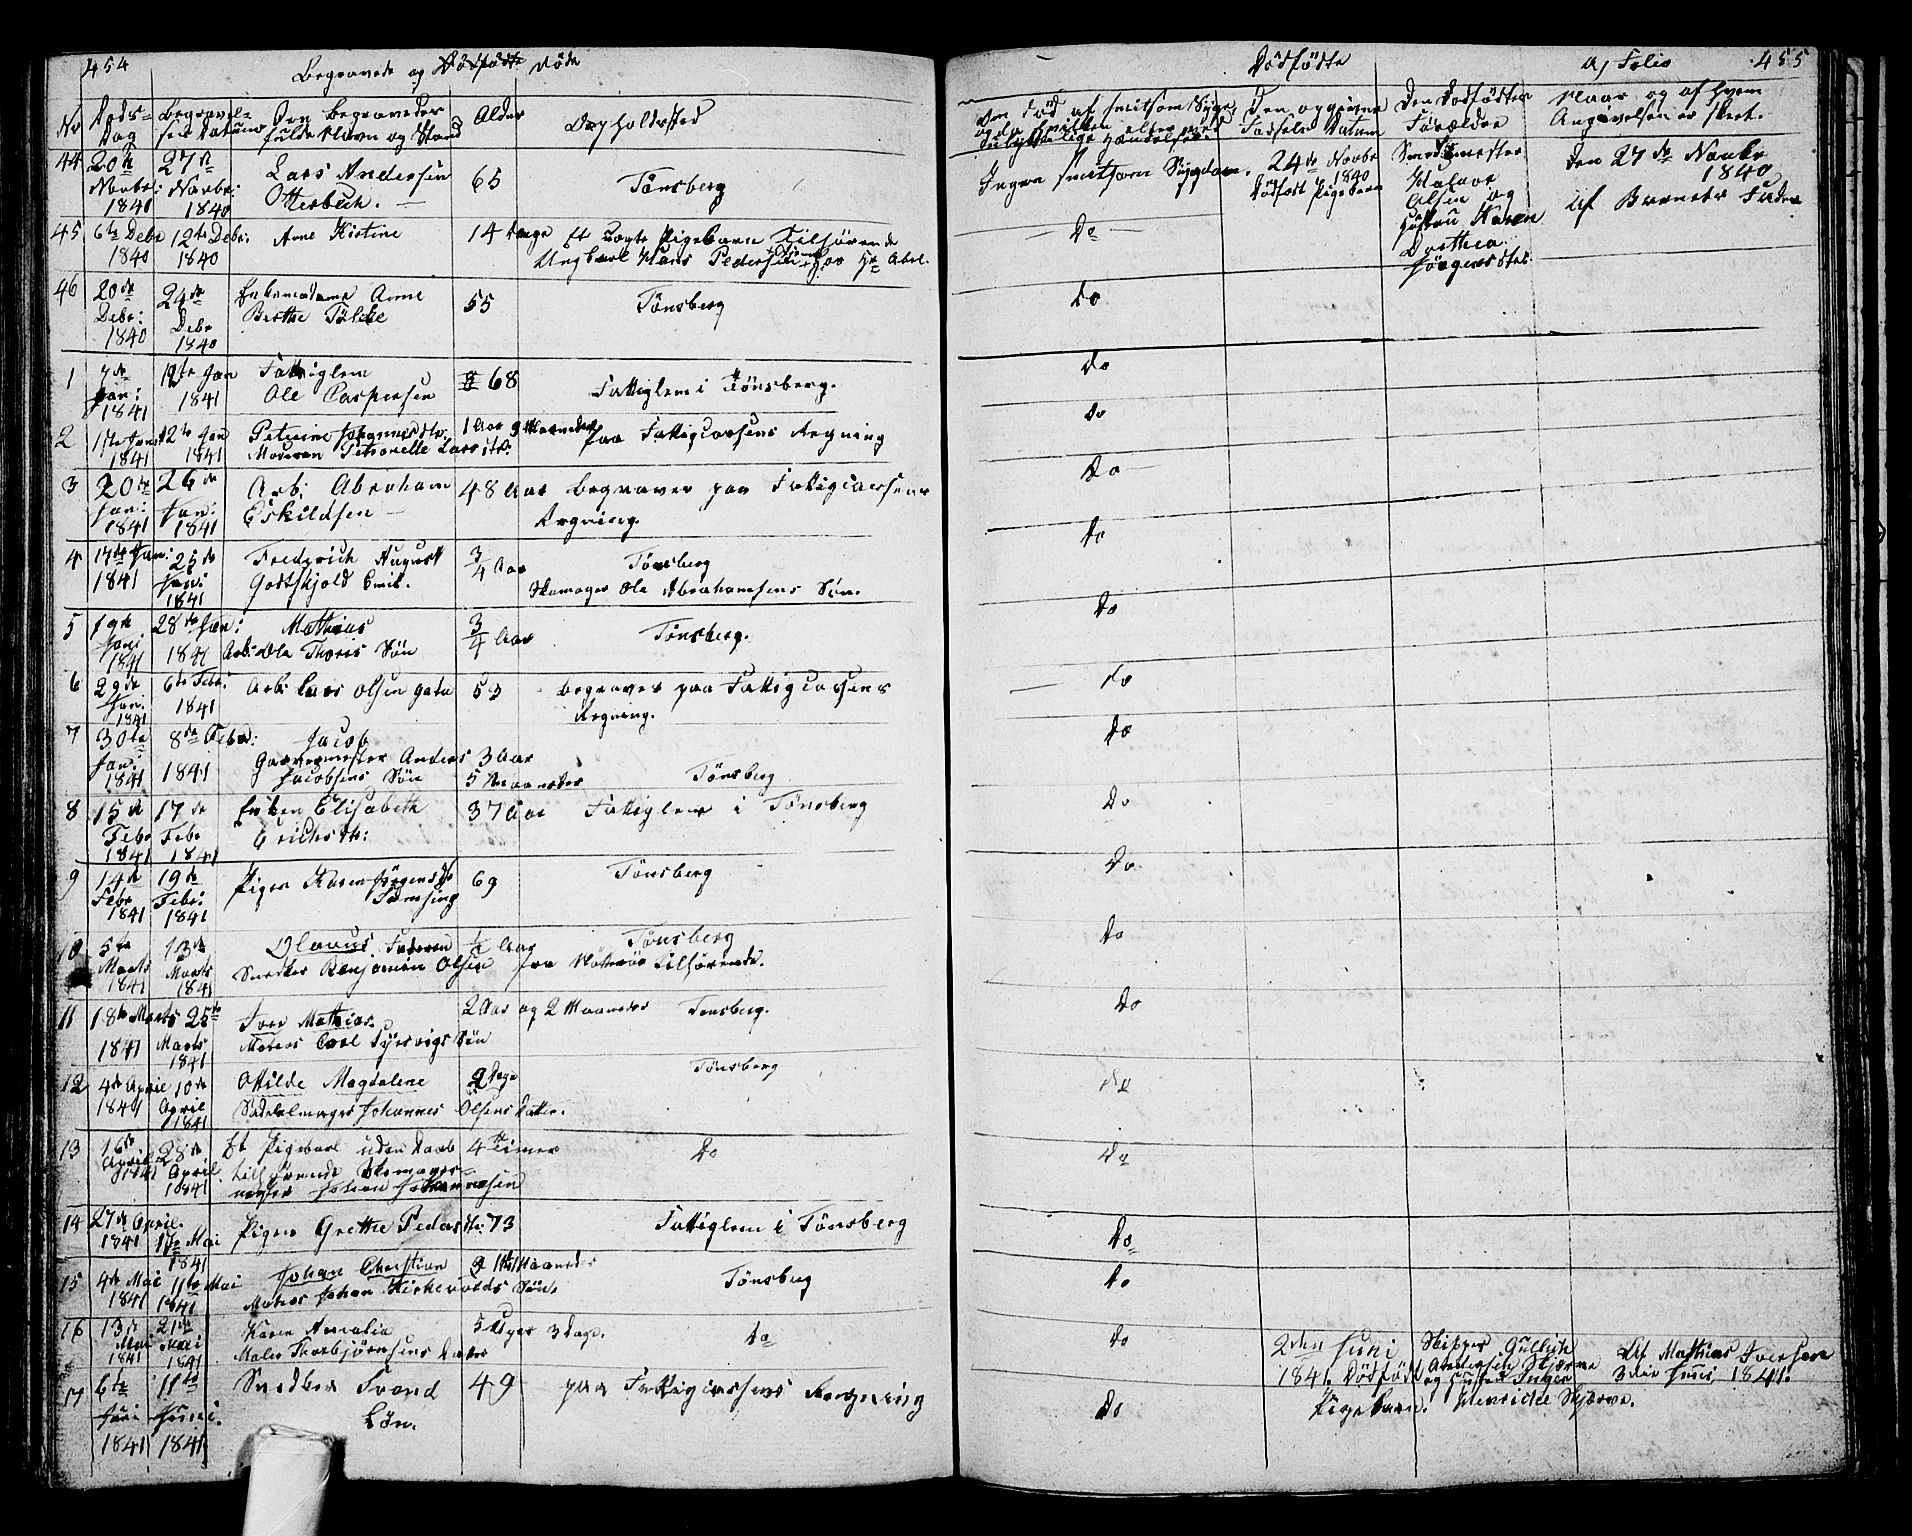 454
Begravede og Dødfødte Døde
Nr
Døds-
Dag
Begravel-
ses Datum
Den Begravedes
fulde Navn og Stand
Alder
Opholdssted
44
20de
Novbr:
1840
27de
Novbr:
1840
Lars Andersen
Otterbech.
65
Tønsberg
45
6te Debr
1840
12te Debr:
1840
Anne Kistine
14 Dage
Et uægte Pigebarn Tilhørende
Ungkarl Hans Pedersen
46
20de
Debr:
1840
24de
Debr
1840
Enkemadame Anne
Berthe
55
Tønsberg
1
7de
Jan:
1841
12te Jan
1841
Fattiglem
Ole Caspersen
68
Fattiglem i Tønsberg.
2
1841
12te Jan
1841
Petrine Johannesdtr:
Moderen Petronelle Larsdtr:
1 Aar 9 Maaneder
paa Fattigcassens Regning
3
20de
Jan:
1841
26de
Jan:
1841
Arb: Abraham
Eskildsen
48 Aar
Begraves paa Fattigcassens
Regning.
4
17de Jan:
1841
25de
Jan:
1841
Frederich August
Godtskjold Emil.
3/4 Aar
Tønsberg
Skomager Ole Abrahamsens Søn.
5
19de
Jan:
1841
28de Jan:
1841
Mathias
Arb: Ole Thoris Søn
3/4 Aar
Tønsberg.
6
29de
Jan:
1841
6te Febr:
1841
Arb: Lars Olsen
53
Begraves paa Fattigcassens
Regning.
7
30te
Jan:
1841
8de Febr:
1841
Jacob
Garvermester Anders
Jacobsens Søn
3 Aar
5 Maaneder
Tønsberg
8
15de
Febr
1841
17de
Febr
1841
Enken Elisabeth
Erichsdtr:
37 Aar
Fattiglem i Tønsberg
9
14de
Febr
1841
19de
Febr:
1841
Pigen Karen Jörgensdr
69
Tønsberg
10
5te
Marts
1841
13de
Marts
1841
Olavus. Faderen
Snedker Benjamin Olsen
1/2 Aar
Tønsberg
fra Nøtterøe tilhørende.
11
18de Marts
1841
25de
Marts
1841
Iver Mathias.
Matros Carl Søn
2 Aar og 2 Maaneder
Tønsberg.
12
4de April
1841
10de
April
1841
Ottilde Magdalene
Sadelmager Johannes Olsens Datter.
2 Dage
Tønsberg
13
16de
April
1841
28de
April
1841
Et Pigebarn uden Daab
tilhørende Skomager-
mester Johan Johannesen
4 Timer
Do
14
27de April.
1841
Mai
1841
Pigen Grethe Pedersdtr:
73
Fattiglem i Tønsberg
15
4de Mai
1841
11te Mai
1841
Johan Christian
Matros Johan Kirkevolds Søn.
Maaneder
Tønsberg
16
13de
Mai
1841
21de
Mai
1841
Karen Amalia
Maler Thorbjørnsens Datter
5 Uger 3 Dage.
Do
17
6te
Juni
1841
11te
Juni.
1841
Snedker Svend
Løn.
49
paa Fattigcassens Regning
Dødfødte
Folio
455
Den Død af smitsom Syge
Den opgivne
Fødsels Datum
Den Dødfødtes
Forældre
Naar og af hvem
Angivelsen er skeet.
Ingen smitsom Sygdom.
24de Novbr
1840
Dødfødt Pigebarn
Smedmester
Halvor
Olsen og
Hustru Karen
Dorthea
Jörgensdtr
den 27de Novbr
1840
af Barnets Fader
Do
Do
Do
Do
Do
Do
Do
Do
Do
Do
Do
Do
Do
Do
Do
Do
Do
Do
Do
2den Juni
1841. Dödfödt
Pigebarn.
Skipper Gullich
Andersen Skjerve
og Hustru Inger
Henricke Skjerve.
Af Mathias Iversen
3die Juni 1841.